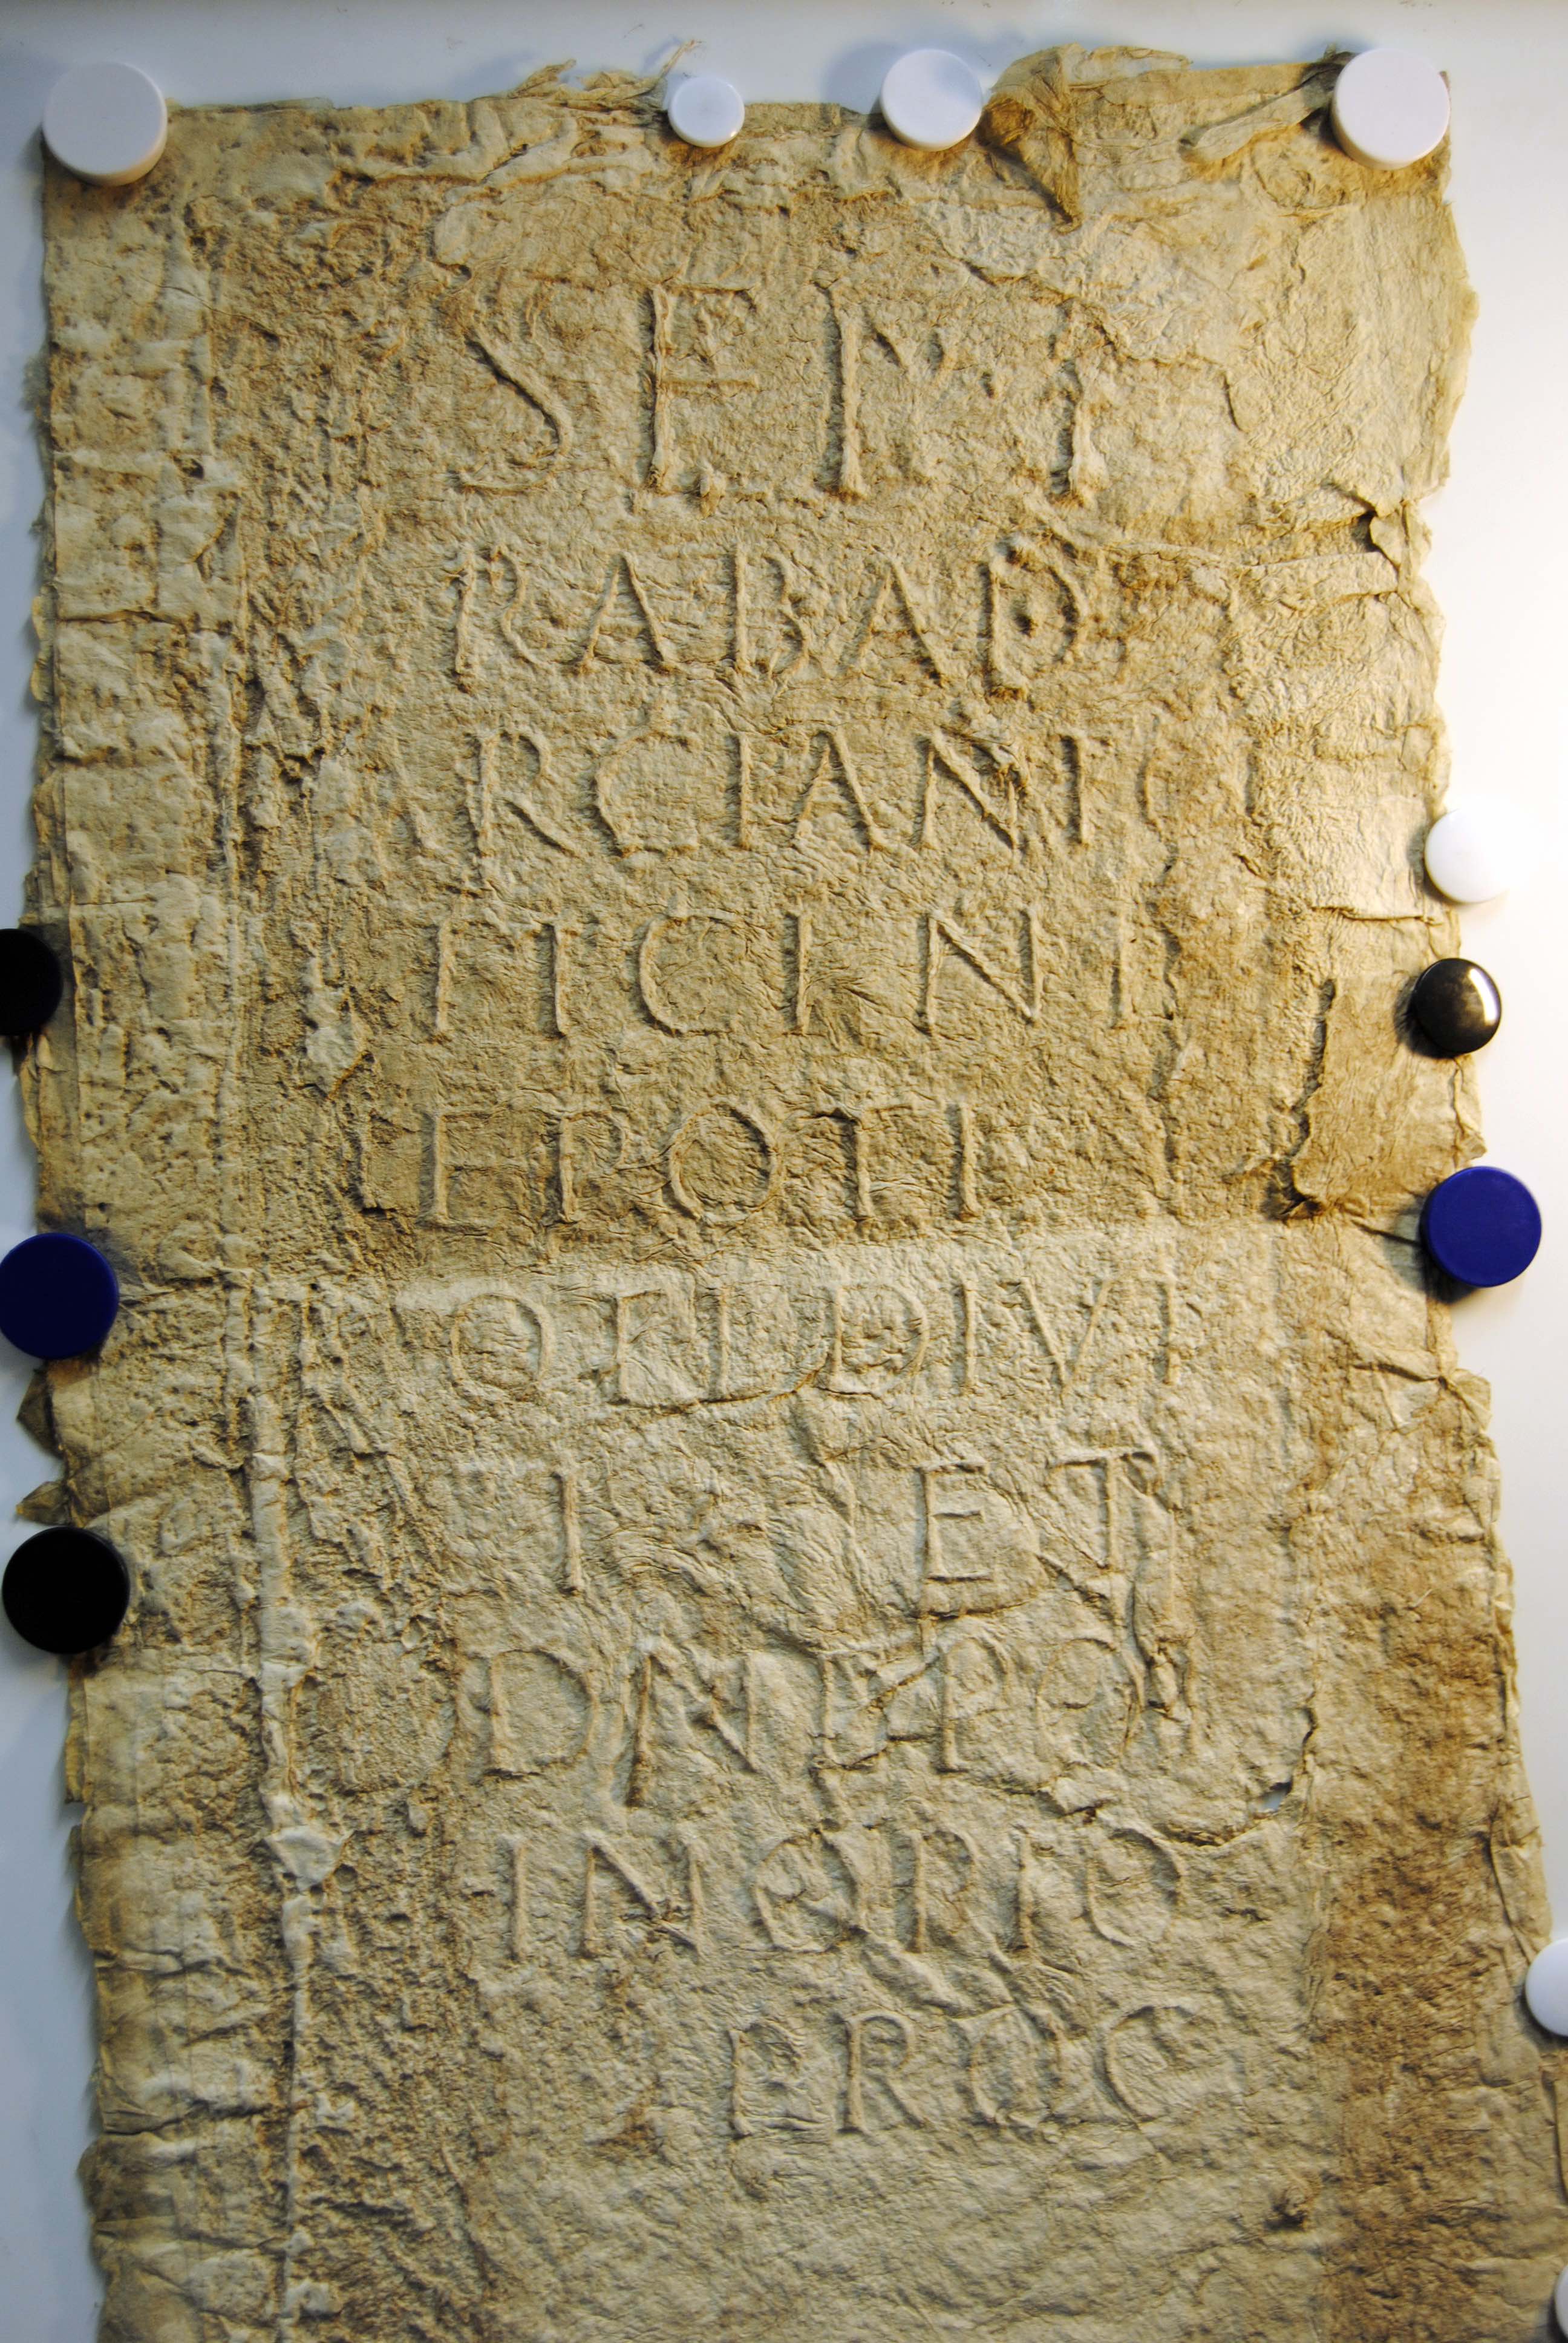 SEPT
RABAD
RCIANI
IICINI
EPOTI
OTI DIVI
TI ET
DNEPOT
INCRIO
PROC